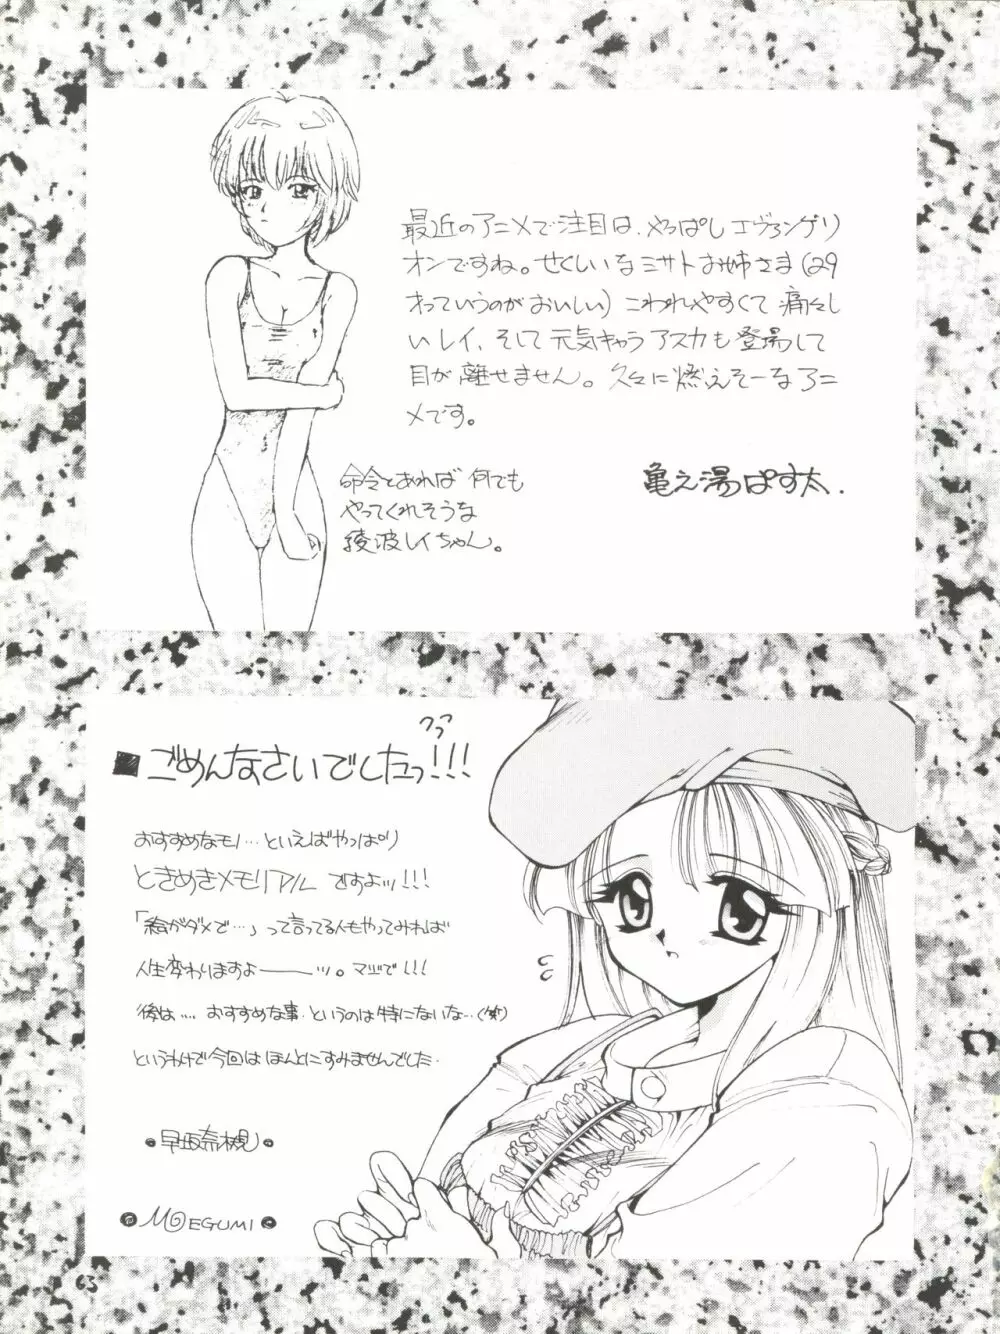 最近のアニメで注目は、やっぱしエヴァンゲリ
オンですね。せくしいなミサトお姉さま(29
才っていうのがおいしい)こわれやすくて痛々し
いレイ、そして元気キャラアスカも登場して
目が離せません。久々に燃えそーなアニ
メです。
命令とあれば何でも
やってくれそうな
綾波レイちゃん。
亀之湯ぱす太.
■ごめんなさいでしたっ!!!
おすすめなモノ…といえばやっぱり
ときめきメモリアル ですよッ!!!
「絵がダメで…」って言ってる人もやってみれば
人生変わりますよ――ッ。マジで!!!
後は…。おすすめな事。というのは特にないな…(笑)
というわけで今回はほんとにすみませんでした.
早坂奈槻
MOEGUMI
63